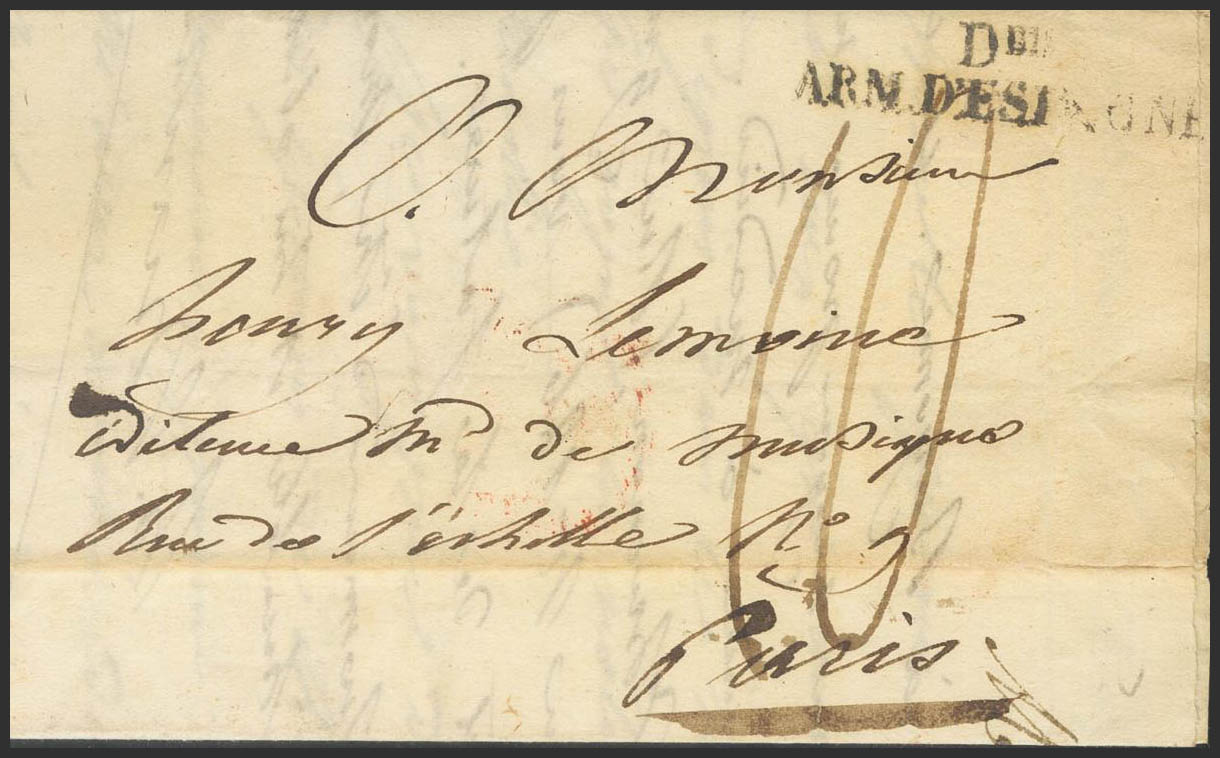 Don
ARM. D'ESPAGNE
A. Monsieur
henry Lemoine
éditeur Md de musique
Rue de l'échelle No 9
Paris